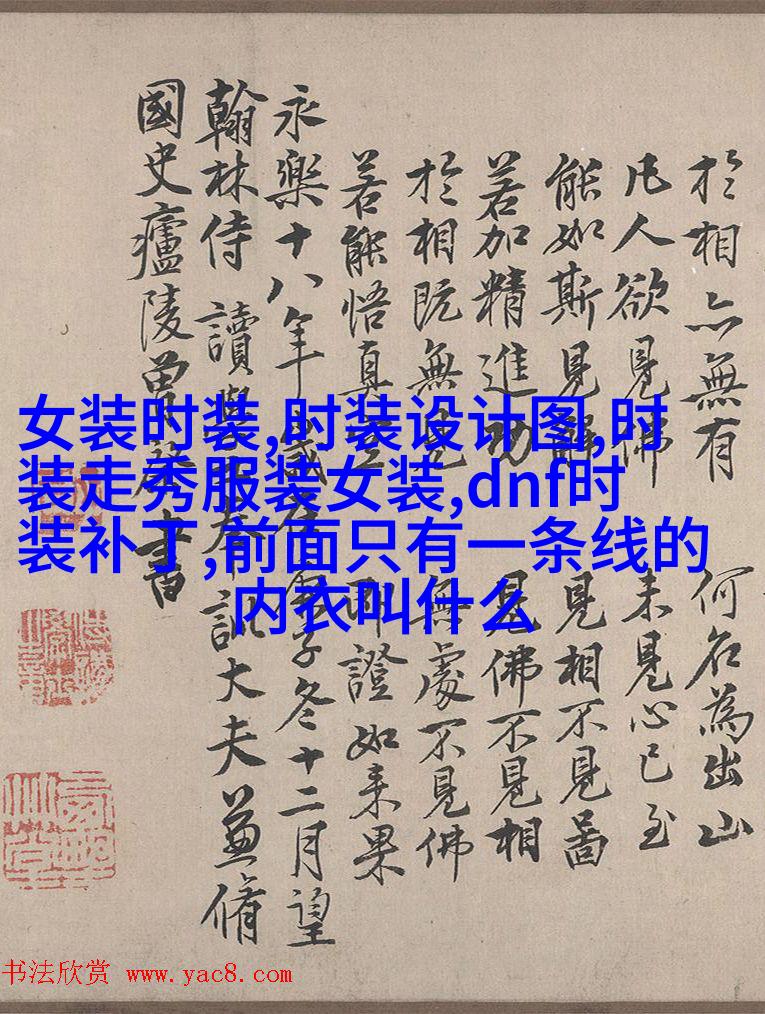 於相亦無有 何名為出山
凡人欲見佛 未見心已至
能如斯見解 見相不見啚
若加精進功 見佛不見相
於相既無見 無處不見佛
若能悟真空 即證如来果
永樂十八年歲在庚子冬十二月望
翰林侍讀學士奉訓大夫兼脩
國史廬陵曾棨書
女装时装,时装设计图,时
装走秀服装女装,dnf时
装补丁,前面只有一条线的
内衣叫什么
书法欣赏 www.yac8.com